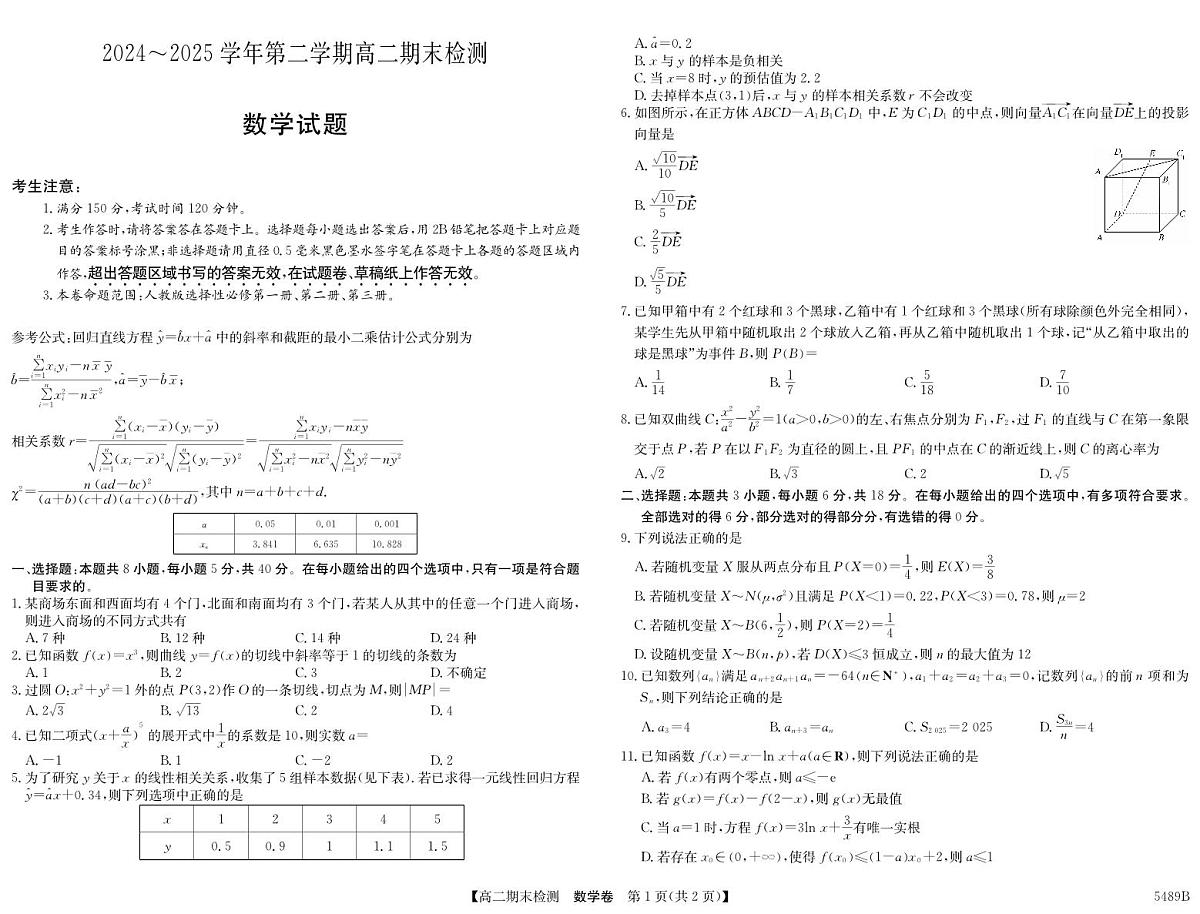 2024～2025 学年第二学期高二期末检测
数学试题
考生注意:
1. 满分 150 分,考试时间 120 分钟。
2. 考生作答时,请将答案答在答题卡上。选择题每小题选出答案后,用 2B 铅笔把答题卡上对应题
目的答案标号涂黑;非选择题请用直径 0.5 毫米黑色墨水签字笔在答题卡上各题的答题区域内
作答,超出答题区域书写的答案无效,在试题卷、草稿纸上作答无效。
3. 本卷命题范围:人教版选择性必修第一册、第二册、第三册。
参考公式:回归直线方程 ŷ=b̂x+â 中的斜率和截距的最小二乘估计公式分别为
b̂=(∑_{i=1}^{n}x_iy_i-n x̄ ȳ)/(∑_{i=1}^{n}x_i²-n x̄²),â=ȳ-b̂x̄;
相关系数 r=(∑_{i=1}^{n}(x_i-x̄)(y_i-ȳ))/(√(∑_{i=1}^{n}(x_i-x̄)²)√(∑_{i=1}^{n}(y_i-ȳ)²))=(∑_{i=1}^{n}x_iy_i-nx̄ȳ)/(√(∑_{i=1}^{n}x_i²-nx̄²)√(∑_{i=1}^{n}y_i²-nȳ²))
χ²=n(ad-bc)²/((a+b)(c+d)(a+c)(b+d)),其中 n=a+b+c+d.
α 0.05 0.01 0.001
x_α 3.841 6.635 10.828
一、选择题:本题共 8 小题,每小题 5 分,共 40 分。在每小题给出的四个选项中,只有一项是符合题
目要求的。
1. 某商场东面和西面均有 4 个门,北面和南面均有 3 个门,若某人从其中的任意一个门进入商场,
则进入商场的不同方式共有
A. 7 种 B. 12 种 C. 14 种 D. 24 种
2. 已知函数 f(x)=x³,则曲线 y=f(x)的切线中斜率等于 1 的切线的条数为
A. 1 B. 2 C. 3 D. 不确定
3. 过圆 O:x²+y²=1 外的点 P(3,2)作 O 的一条切线,切点为 M,则|MP|=
A. 2√3 B. √13 C. 2 D. 4
4. 已知二项式(x+a/x)⁵ 的展开式中1/x的系数是 10,则实数 a=
A. -1 B. 1 C. -2 D. 2
5. 为了研究 y 关于 x 的线性相关关系,收集了 5 组样本数据(见下表). 若已求得一元线性回归方程
ŷ=âx+0.34,则下列选项中正确的是
x 1 2 3 4 5
y 0.5 0.9 1 1.1 1.5
A. â=0.2
B. x 与 y 的样本是负相关
C. 当 x=8 时,y 的预估值为 2.2
D. 去掉样本点(3,1)后,x 与 y 的样本相关系数 r 不会改变
6. 如图所示,在正方体 ABCD-A₁B₁C₁D₁ 中,E 为 C₁D₁ 的中点,则向量A₁C₁→在向量DE→上的投影
向量是
A. √10/10 DE→
B. √10/5 DE→
C. 2/5 DE→
D. √5/5 DE→
D₁ E C₁
A B₁
D C
A B
7. 已知甲箱中有 2 个红球和 3 个黑球,乙箱中有 1 个红球和 3 个黑球(所有球除颜色外完全相同),
某学生先从甲箱中随机取出 2 个球放入乙箱,再从乙箱中随机取出 1 个球,记“从乙箱中取出的
球是黑球”为事件 B,则 P(B)=
A. 1/14 B. 1/7 C. 5/18 D. 7/10
8. 已知双曲线 C:x²/a²-y²/b²=1(a>0,b>0)的左、右焦点分别为 F₁,F₂,过 F₁ 的直线与 C 在第一象限
交于点 P,若 P 在以 F₁F₂ 为直径的圆上,且 PF₁ 的中点在 C 的渐近线上,则 C 的离心率为
A. √2 B. √3 C. 2 D. √5
二、选择题:本题共 3 小题,每小题 6 分,共 18 分。在每小题给出的四个选项中,有多项符合要求。
全部选对的得 6 分,部分选对的得部分分,有选错的得 0 分。
9. 下列说法正确的是
A. 若随机变量 X 服从两点分布且 P(X=0)=1/4,则 E(X)=3/8
B. 若随机变量 X~N(μ,σ²)且满足 P(X<1)=0.22,P(X<3)=0.78,则 μ=2
C. 若随机变量 X~B(6,1/2),则 P(X=2)=1/4
D. 设随机变量 X~B(n,p),若 D(X)≤3 恒成立,则 n 的最大值为 12
10. 已知数列{aₙ}满足 aₙ₊₂aₙ₊₁aₙ=-64(n∈N*),a₁+a₂=a₂+a₃=0,记数列{aₙ}的前 n 项和为
Sₙ,则下列结论正确的是
A. a₃=4 B. aₙ₊₃=aₙ C. S₂ ₀₂₅=2 025 D. S₃ₙ/n=4
11. 已知函数 f(x)=x-ln x+a(a∈R),则下列说法正确的是
A. 若 f(x)有两个零点,则 a≤-e
B. 若 g(x)=f(x)-f(2-x),则 g(x)无最值
C. 当 a=1 时,方程 f(x)=3ln x+3/x有唯一实根
D. 若存在 x₀∈(0,+∞),使得 f(x₀)≤(1-a)x₀+2,则 a≤1
【高二期末检测 数学卷 第 1 页(共 2 页)】
5489B